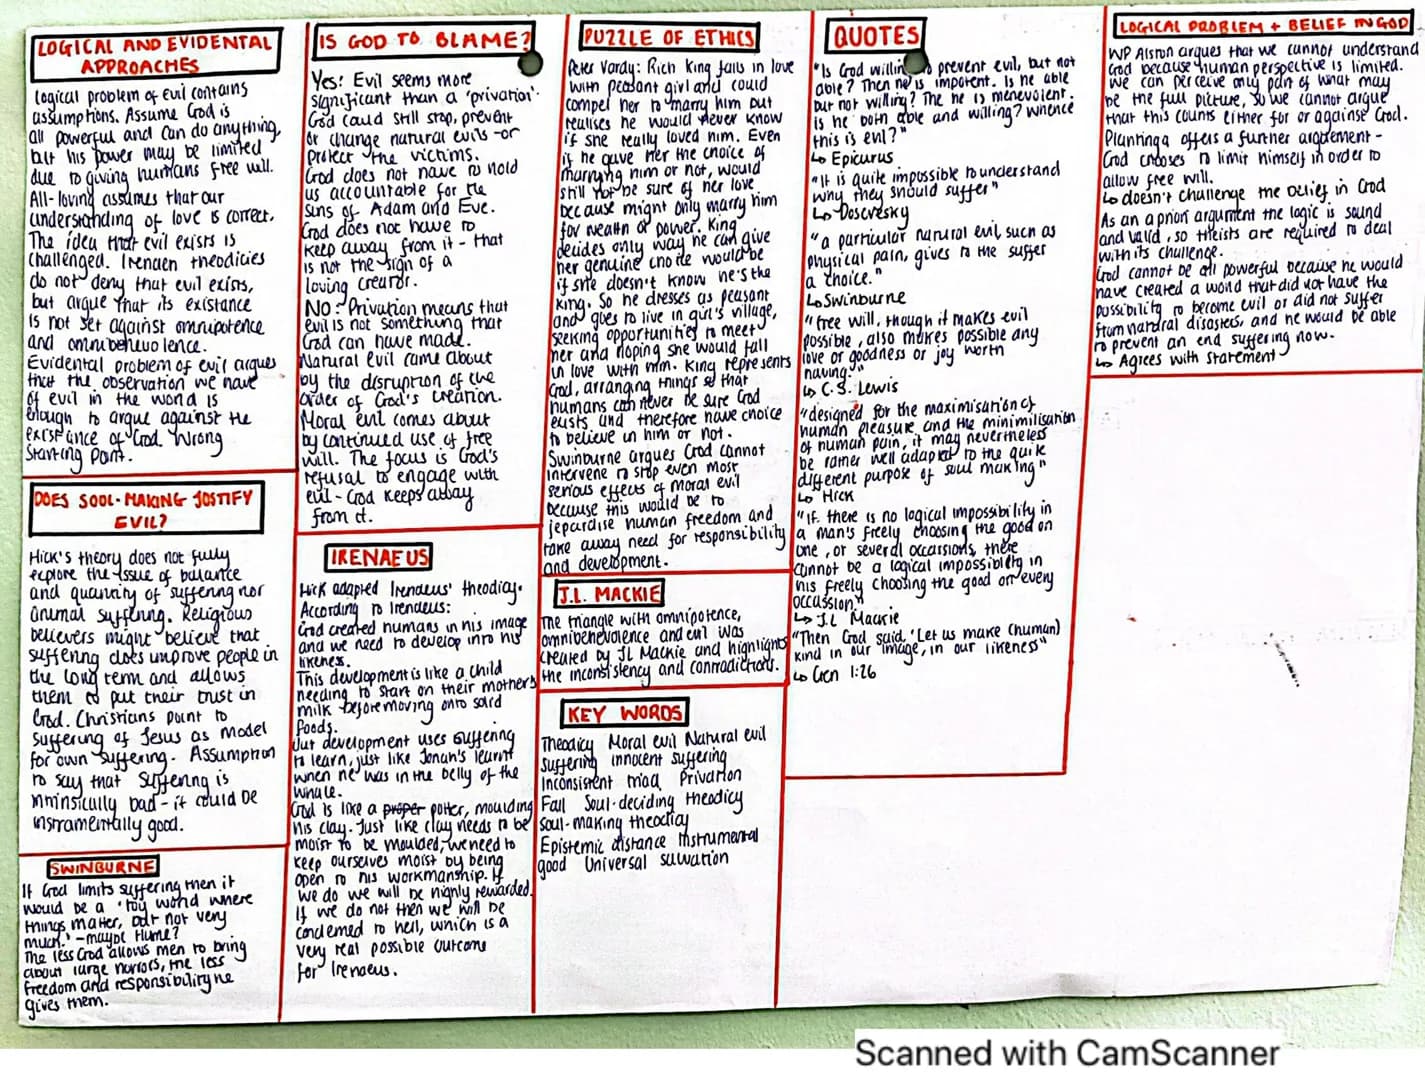 LOGICAL AND EVIDENTAL
APPROACHES
Logical problem of evil contains
assumptions. Assume God is
all powerful and can do anything,
but his power may be limited
due to giving humans free will.
All-loving assumes that our
understanding of love is correct.
The idea that evil exists is
challenged. Irenaen theodicies
do not deny that evil exists,
but argue that its existance
is not set against omnipotence
and omnibenevolence.
Evidental problem of evil argues
that the observation we have
of evil in the world is
enough to argue against the
existance of God. Wrong
starting point.
DOES SOUL-MAKING JUSTIFY
EVIL?
Hick's theory does not fully
explore the issue of balance
and quantity of suffering nor
animal suffering. Religious
believers might believe that
suffering does improve people in
the long term and allows
them to put their trust in
God. Christians point to
suffering of Jesus as model
for own suffering. Assumption
to say that suffering is
intrinsically bad - it could be
instramentally good.
SWINBURNE
If God limits suffering then it
would be a 'toy world where
things matter, but not very
much.' - maybe Hume?
The less God allows men to bring
about large horrors, the less
freedom and responsibility he
gives them.
IS GOD TO BLAME?
Yes: Evil seems more
significant than a 'privation'.
God could still stop, prevent
or change natural evils - or
protect the victims.
God does not have to hold
us accountable for the
sins of Adam and Eve.
God does not have to
keep away from it - that
is not the sign of a
loving creator.
NO: Privation means that
evil is not something that
God can have made.
Natural evil came about
by the disruption of the
order of God's creation.
Moral evil comes about
by continued use of free
will. The focus is God's
refusal to engage with
evil - God keeps away
from it.
IRENAEUS
Hick adapted Irenaeus' theodicy.
According to Irenaeus:
God created humans in his image
and we need to develop into his
likeness.
This development is like a child
needing to start on their mothers
milk before moving onto solid
foods.
Our development uses suffering
to learn, just like Jonah's learnt
when he was in the belly of the
whale.
God is like a proper potter, moulding
his clay. Just like clay needs to be
moist to be moulded, we need to
keep ourselves moist by being
open to his workmanship. If
we do we will be highly rewarded.
If we do not then we will be
condemned to hell, which is a
very real possible outcome
for Irenaeus.
PUZZLE OF ETHICS
Peter Vardy: Rich King falls in love
with peasant girl and could
compel her to marry him but
realises he would never know
if she really loved him. Even
if he gave her the choice of
marrying him or not, would
still not be sure of her love
because might only marry him
for wealth or power. King
decides only way he can give
her genuine choice would be
if she doesn't know he's the
king. So he dresses as peasant
and goes to live in girl's village,
seeking opportunities to meet
her and hoping she would fall
in love with him. King represents
God, arranging things so that
humans can never be sure God
exists and therefore have choice
to believe in him or not.
Swinburne argues God cannot
intervene to stop even most
serious effects of moral evil
because this would be to
jepardise human freedom and
take away need for responsibility
and development.
J.L. MACKIE
The triangle with omnipotence,
omnibenevolence and evil was
created by JL Mackie and highlights
the inconsistency and contradictions.
KEY WORDS
Theodicy Moral evil Natural evil
suffering innocent suffering
Inconsistent triad Privation
Fall Soul-deciding theodicy
soul-making theodicy
Epistemic distance Instrumental
good Universal salvation
QUOTES
"Is God willing to prevent evil, but not
able? Then he is impotent. Is he able
but not willing? The he is malevolent.
Is he both able and willing? whence
this is evil?"
↳ Epicurus
"It is quite impossible to understand
why they should suffer"
↳ Doscvesky
"a particular natural evil, such as
physical pain, gives to the suffer
a choice."
↳ Swinburne
"free will, though it makes evil
possible, also makes possible any
love or goodness or joy worth
having."
↳ C.S. Lewis
"designed for the maximisation of
human pleasure and the minimilisation
of human pain, it may nevertheless
be rather well adapted to the quite
different purpose of soul making"
↳ Hick
"If there is no logical impossibility in
a man's freely choosing the good on
one, or several occaisions, there
cannot be a logical impossibility in
his freely choosing the good on every
occassion."
↳ J.L Mackie
"Then God said, 'Let us make (human)
kind in our image, in our likeness"
↳ Gen 1:26
LOGICAL PROBLEM + BELIEF IN GOD
WP Alston argues that we cannot understand
God because human perspective is limited.
We can perceive only part of what may
be the full picture, so we cannot argue
that this counts either for or against God.
Plantinga offers a further arguement -
God chooses to limit himself in order to
allow free will.
↳ doesn't challenge the belief in God
As an apriori argument the logic is sound
and valid, so theists are required to deal
with its challenge.
God cannot be all powerful because he would
have created a world that did not have the
possibility to become evil or did not suffer
from natural disasters, and he would be able
to prevent an end suffering now.
↳ Agrees with statement
Scanned with CamScanner